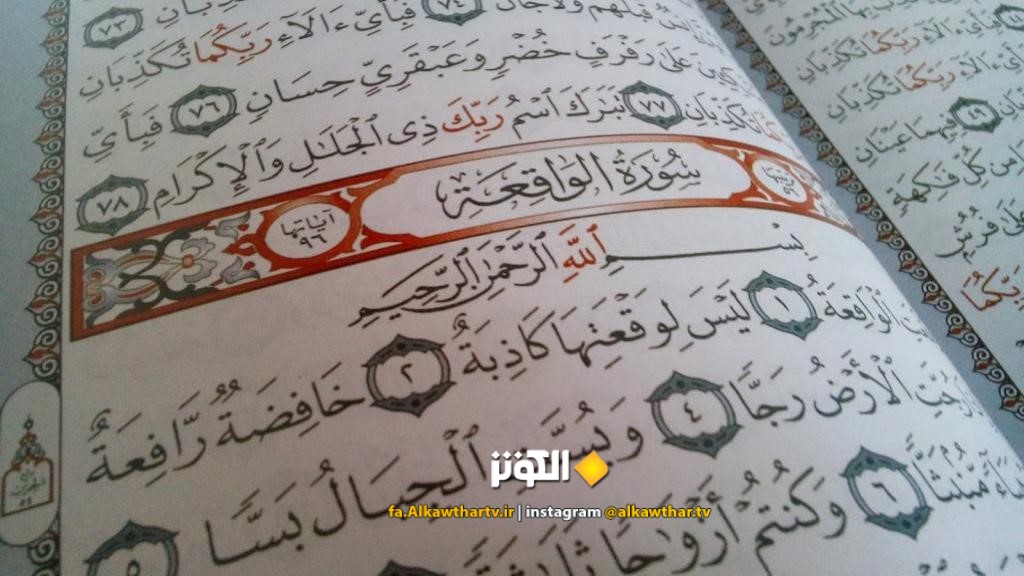 ٧٣
قبلهم ولا جان ٧٤ فَبِأَيِّ ءَالَآءِ رَبِّكُمَا تُكَذِّبَانِ
عَلَىٰ رَفْرَفٍ خُضْرٍ وَعَبْقَرِيٍّ حِسَانٍ ٧٦ فَبِأَيِّ
تُكَذِّبَانِ ٧٧ تَبَٰرَكَ ٱسْمُ رَبِّكَ ذِى ٱلْجَلَٰلِ وَٱلْإِكْرَامِ ٧٨
سُورَةُ الوَاقِعَةِ
آيَاتُهَا ٩٦
بِسْمِ ٱللَّهِ ٱلرَّحْمَٰنِ ٱلرَّحِيمِ
ٱلْوَاقِعَةُ ١ لَيْسَ لِوَقْعَتِهَا كَاذِبَةٌ ٢ خَافِضَةٌ رَّافِعَةٌ
ٱلْأَرْضُ رَجًّا ٤ وَبُسَّتِ ٱلْجِبَالُ بَسًّا ٥
مُّنۢبَثًّا ٦ وَكُنتُمْ أَزْوَٰجًا
رَبِّكُمَا تُكَذِّبَانِ
رَبِّكُمَا تُكَذِّبَانِ
فِيهِمَا عَيْنَانِ
مِن كُلِّ فَٰكِهَةٍ
فُرُشٍ
الكوثر
fa.Alkawthartv.ir | instagram @alkawthar.tv